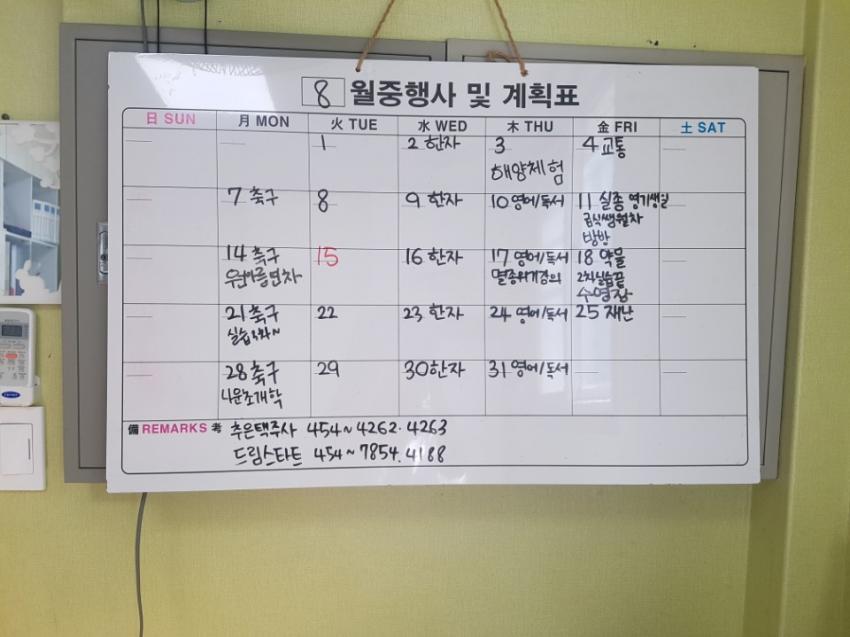 8 월중행사 및 계획표
日 SUN 月 MON 火 TUE 水 WED 木 THU 金 FRI 土 SAT
1 2 한자 3 4 교통
해양체험
7 축구 8 9 한자 10 영어/독서 11 실종 영기생일
급식쌤월차
방방
14 축구 15 16 한자 17 영어/독서 18 약물
멸종위기강의 2차실습끝
수영장
21 축구 22 23 한자 24 영어/독서 25 재난
28 축구 29 30 한자 31 영어/독서
나운초개학
備 REMARKS 考 추은택주사 454~4262.4263
드림스타트 454~7854.4188